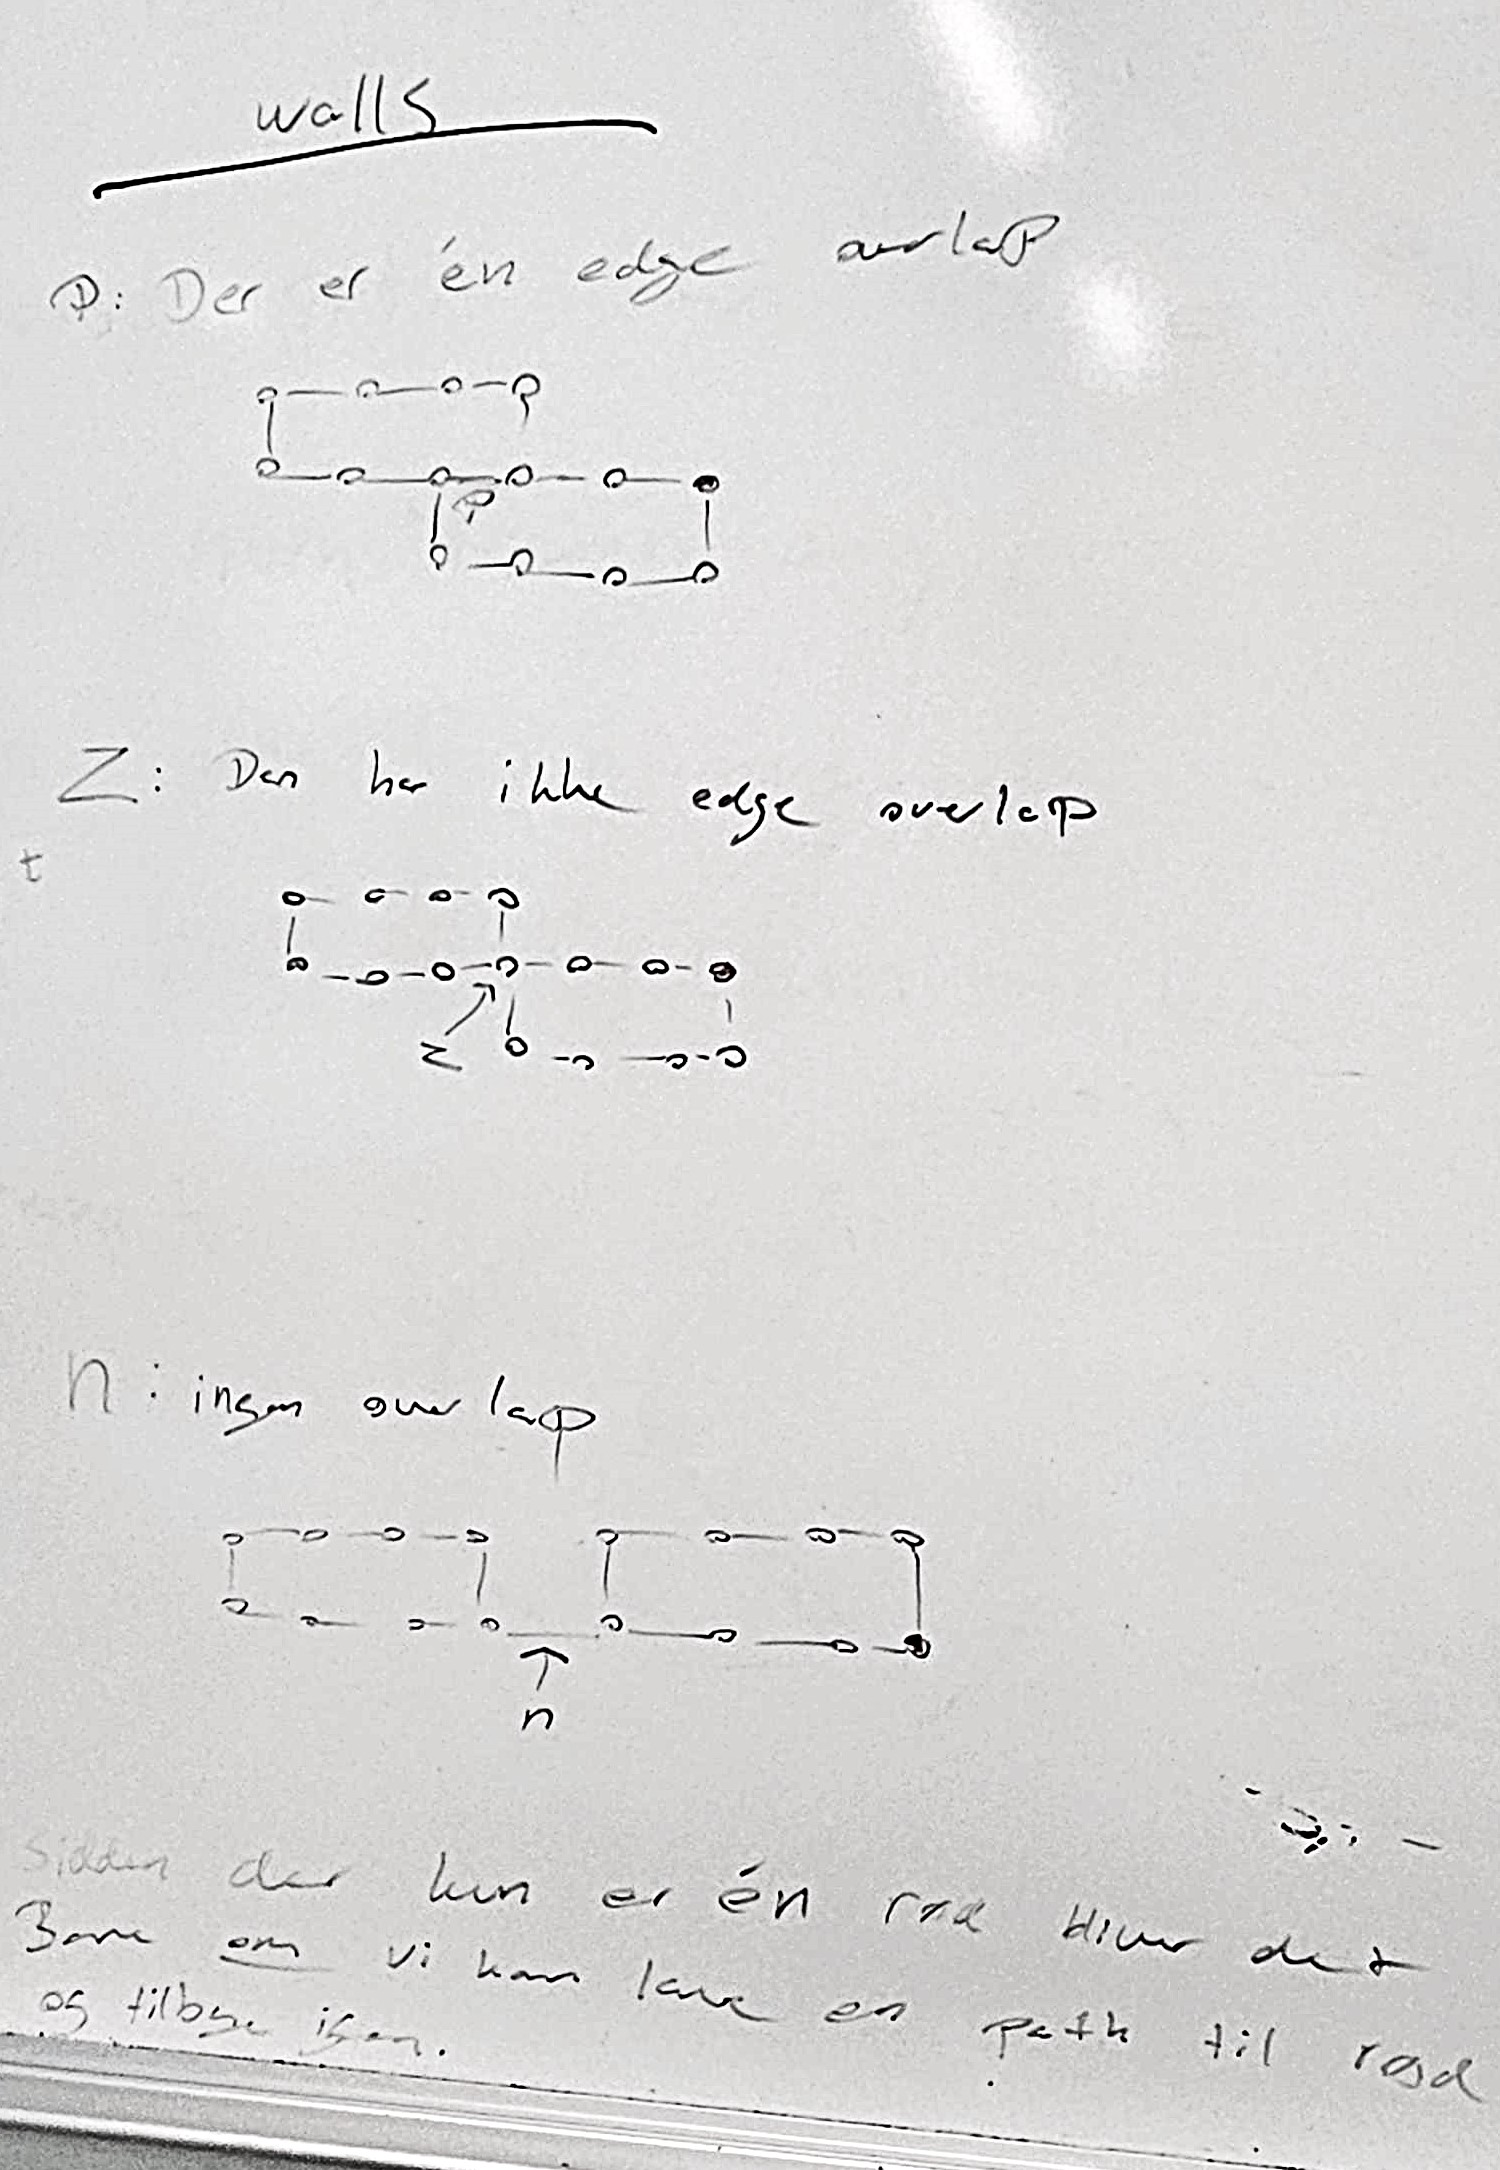 walls
P: Der er én edge overlap
P
Z: Den har ikke edge overlap
t
Z
n: ingen overlap
n
Sidden der kun er én rød bliver det
Bare om vi kan lave en path til rød
og tilbage igen.